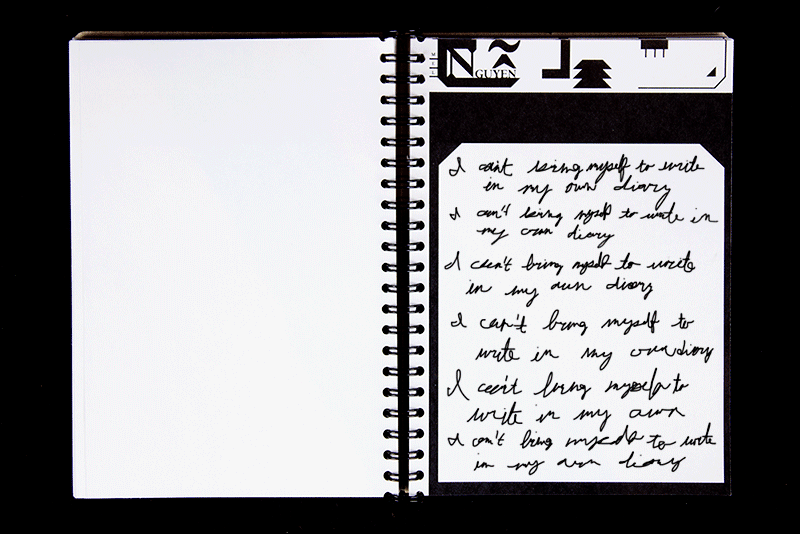 NGUYEN
I can't bring myself to write
in my own diary
I can't bring myself to write in
my own diary
I can't bring myself to write
in my own diary
I can't bring myself to
write in my own diary
I can't bring myself to
write in my own
I can't bring myself to write
in my own diary